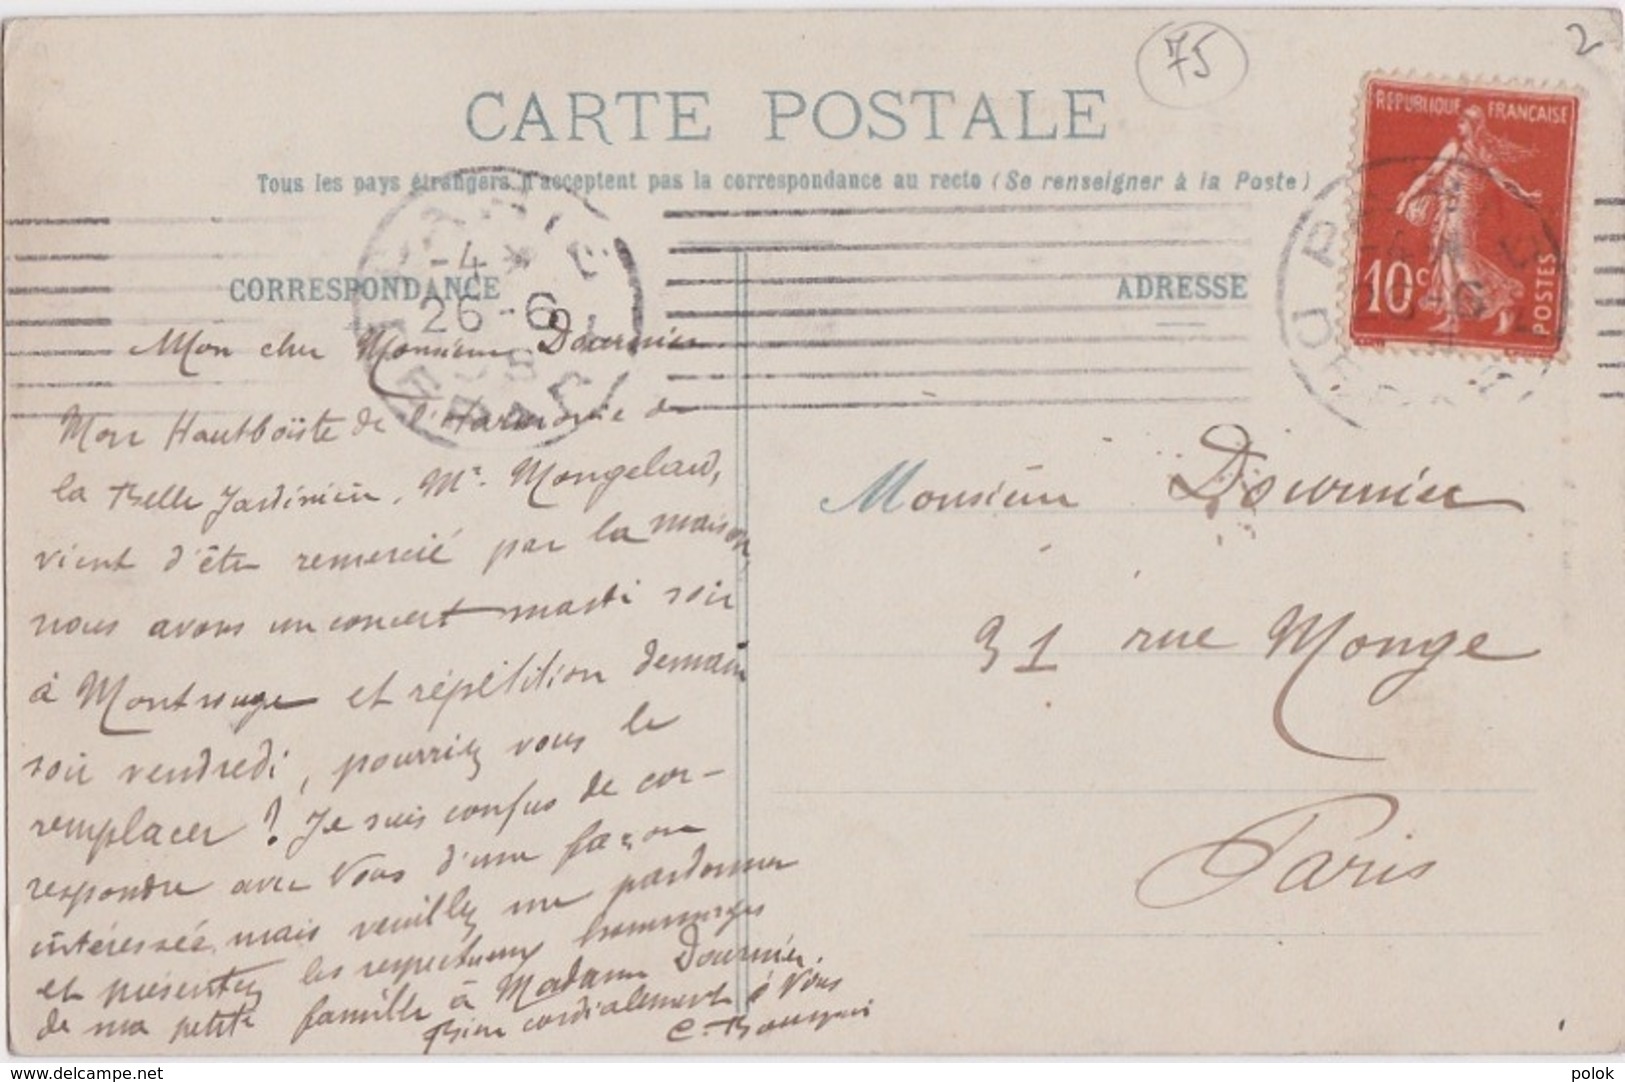 75
2
CARTE POSTALE
Tous les pays étrangers n'acceptent pas la correspondance au recto (Se renseigner à la Poste)
REPUBLIQUE FRANÇAISE
10c
POSTES
-4 *
26-6
CORRESPONDANCE
ADRESSE
Mon cher Monsieur Dournier
Mon Hautboïste de l'Harmonie de
la Belle Jardinière, Mr. Mongelard,
vient d'être remercié par la maison,
nous avons un concert mardi soir
à Montrouge et répétition demain
soir vendredi, pourriez vous le
remplacer ? Je suis confus de cor-
respondre avec Vous d'une façon
intéressée, mais veuillez me pardonner
et présentez les respectueux hommages
de ma petite famille à Madame Dournier.
Bien cordialement à Vous
C.
Monsieur Dournier
31 rue Monge
Paris
www.delcampe.net
polok